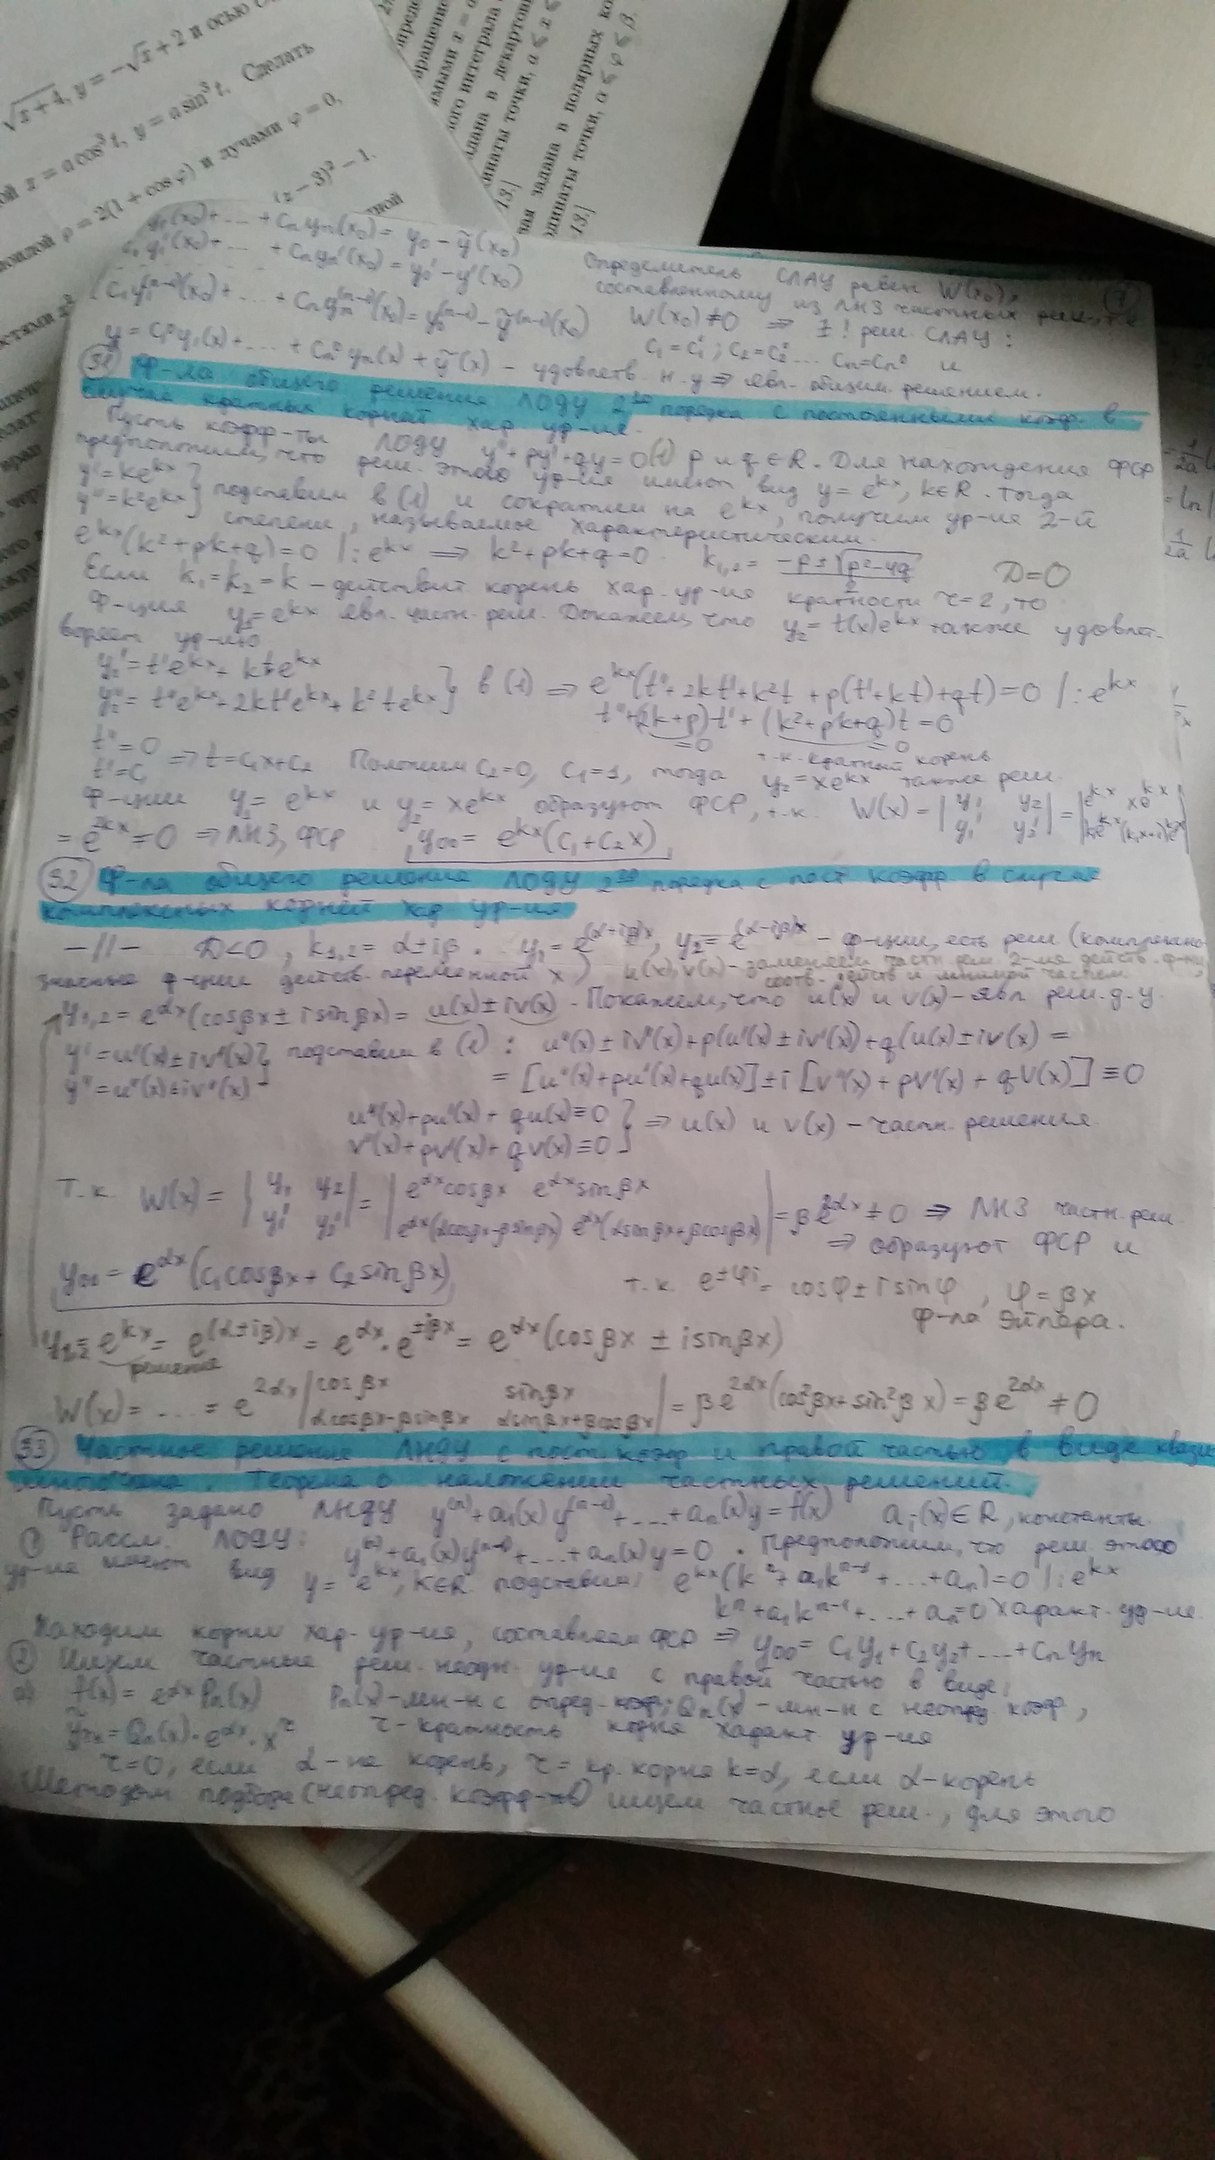 √x+4, y = −√x + 2 и осью
x = a cos³t, y = a sin³t. Сделать
ρ = 2(1 + cos φ) и лучами φ = 0,
(x − 3)² − 1.
ного интеграла
задана в декартовы
точки, a ⩽ x ⩽
13.]
задана в полярных
точки, α ⩽ φ ⩽ β.
13.]
y₁(x₀)+...+Cₙyₙ(x₀) = y₀ − ỹ(x₀)
C₁y₁'(x₀)+...+Cₙyₙ'(x₀) = y₀' − ỹ'(x₀)
C₁y₁⁽ⁿ⁻¹⁾(x₀)+...+Cₙyₙ⁽ⁿ⁻¹⁾(x₀) = y₀⁽ⁿ⁻¹⁾ − ỹ⁽ⁿ⁻¹⁾(x₀)
Определитель СЛАУ равен W(x₀),
составленному из ЛНЗ частных реш.,
W(x₀) ≠ 0 ⇒ ∃! реш. СЛАУ:
C₁=C₁⁰; C₂=C₂⁰... Cₙ=Cₙ⁰ и
y = C₁⁰y₁(x)+...+Cₙ⁰yₙ(x)+ỹ(x) – удовлетв. н.у ⇒ явл. общим решением.
31 Ф-ла общего решения ЛОДУ 2го порядка с постоянными коэф. в
случае кратных корней хар ур-ия.
Пусть коэфф-ты ЛОДУ y''+py'+qy=0 (1) p и q ∈ R. Для нахождения ФСР
предположим, что реш. этого ур-ия имеют вид y=eᵏˣ, k∈R. Тогда
y'=keᵏˣ
y''=k²eᵏˣ } подставим в (1) и сократим на eᵏˣ, получим ур-ия 2-й
степени, называемое характеристическим.
eᵏˣ(k²+pk+q)=0 |:eᵏˣ ⇒ k²+pk+q=0 k₁,₂ = (−p±√(p²−4q))/2 D=0
Если k₁=k₂=k – действит корень хар. ур-ия кратности r=2, то
ф-ция y₁=eᵏˣ явл. частн. реш. Докажем, что y₂=t(x)eᵏˣ также удовлет-
воряет ур-ию
y₂'=t'eᵏˣ+kteᵏˣ
y₂''=t''eᵏˣ+2kt'eᵏˣ+k²teᵏˣ } в (1) ⇒ eᵏˣ(t''+2kt'+k²t+p(t'+kt)+qt)=0 |:eᵏˣ
t''+(2k+p)t'+(k²+pk+q)t=0
=0 =0
т.к. кратный корень
t''=0
t'=C₁ ⇒ t=C₁x+C₂ Положим C₂=0, C₁=1, тогда y₂=xeᵏˣ также реш.
Ф-ции y₁=eᵏˣ и y₂=xeᵏˣ образуют ФСР, т.к. W(x)=|y₁ y₂; y₁' y₂'|=|eᵏˣ xeᵏˣ; keᵏˣ (kx+1)eᵏˣ|
=e²ᵏˣ≠0 ⇒ ЛНЗ, ФСР yоо=eᵏˣ(C₁+C₂x)
32 Ф-ла общего решения ЛОДУ 2го порядка с пост коэфф в случае
комплексных корней хар ур-ия
–//– D<0, k₁,₂=α±iβ. y₁=e^(α+iβ)x, y₂=e^(α−iβ)x – ф-ции, есть реш (комплексно-
значные ф-ции действ. переменной x) u(x), v(x) – заменяем частн реш 2-мя действ. ф-ми,
соотв. действ и мнимой частям
y₁,₂=e^αx(cosβx±isinβx)=u(x)±iv(x). Покажем, что u(x) и v(x) – явл реш. д.у.
y'=u'(x)±iv'(x)
y''=u''(x)±iv''(x) } подставим в (1): u''(x)±iv''(x)+p(u'(x)±iv'(x))+q(u(x)±iv(x)=
=[u''(x)+pu'(x)+qu(x)]±i[v''(x)+pv'(x)+qv(x)]≡0
u''(x)+pu'(x)+qu(x)≡0
v''(x)+pv'(x)+qv(x)≡0 } ⇒ u(x) и v(x) – частн. решения
Т.к. W(x)=|y₁ y₂; y₁' y₂'|=|e^αxcosβx e^αxsinβx; e^αx(αcosβx−βsinβx) e^αx(αsinβx+βcosβx)|=βe^2αx≠0 ⇒ ЛНЗ частн. реш.
⇒ образуют ФСР и
yоо=e^αx(C₁cosβx+C₂sinβx) т.к. e^±φi=cosφ±isinφ, φ=βx
ф-ла Эйлера.
y₁,₂=eᵏˣ=e^(α±iβ)x=e^αx·e^±iβx=e^αx(cosβx±isinβx)
решения
W(x)=...=e^2αx|cosβx sinβx; αcosβx−βsinβx αsinβx+βcosβx|=βe^2αx(cos²βx+sin²βx)=βe^2αx≠0
33 Частное решение ЛНДУ с пост. коэф и правой частью в виде квази
Теорема о наложении частных решений.
Пусть задано ЛНДУ y⁽ⁿ⁾+a₁(x)y⁽ⁿ⁻¹⁾+...+aₙ(x)y=f(x) aᵢ(x)∈R, константы.
① Рассм. ЛОДУ: y⁽ⁿ⁾+a₁(x)y⁽ⁿ⁻¹⁾+...+aₙ(x)y=0. Предположим, что реш. этого
ур-ия имеют вид y=eᵏˣ, k∈R подставим: eᵏˣ(kⁿ+a₁kⁿ⁻¹+...+aₙ)=0 |:eᵏˣ
kⁿ+a₁kⁿ⁻¹+...+aₙ=0 характ. ур-ие.
Находим корни хар. ур-ия, составляем ФСР ⇒ yоо=C₁y₁+C₂y₂+...+Cₙyₙ
② Ищем частные реш. неодн. ур-ия с правой частью в виде:
а) f(x)=e^αx Pₙ(x) Pₙ(x)-мн-н с опред. коэф; Qₙ(x)-мн-н с неопред коэф,
ỹчн=Qₙ(x)·e^αx·xʳ r-кратность корня характ ур-ия
r=0, если α-не корень, r=кр. корня k=α, если α-корень
Методом подбора (неопред. коэфф-тов) ищем частное реш., для этого